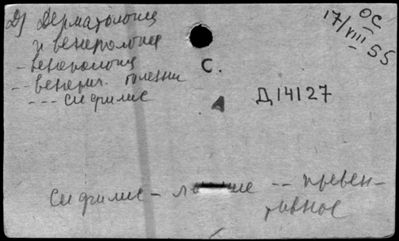 Д) Дерматология
и венерология
ОС
17/VIII 55
-- венерология
-- венерич. болезни
--- сифилис
С.
А
Д14127
Сифилис - -- превен-
тивное